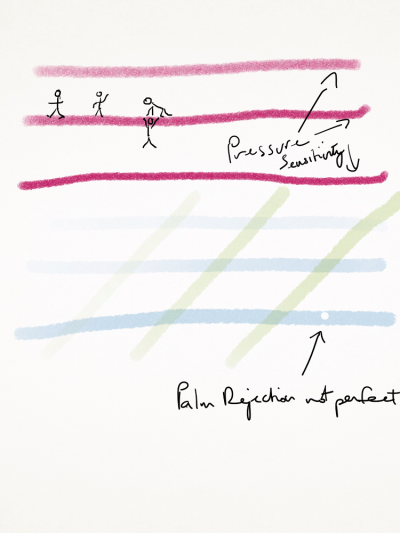 Pressure
Sensitivity
Palm Rejection not perfect